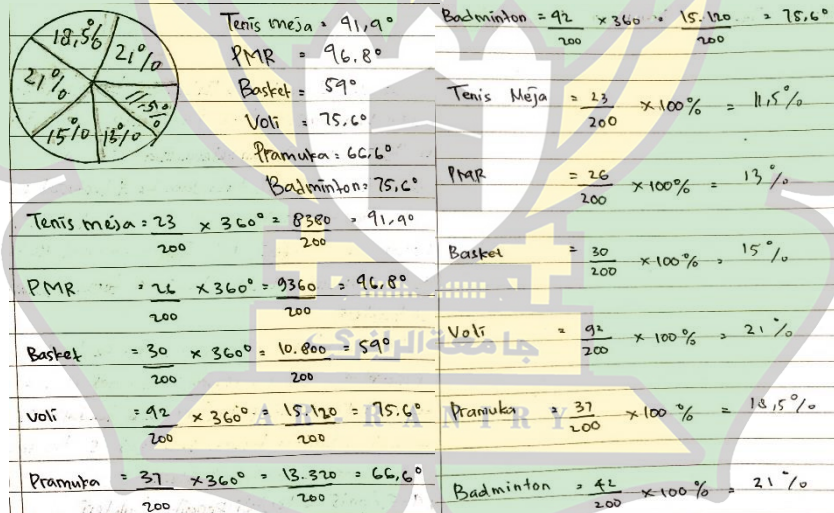 18,5%
21%
21%
11,5%
15%
13%
Tenis meja = 41,4°
PMR = 46,8°
Basket = 54°
Voli = 75,6°
Pramuka = 66,6°
Badminton = 75,6°
Tenis meja = 23/200 × 360° = 8380/200 = 41,4°
PMR = 26/200 × 360° = 9360/200 = 46,8°
Basket = 30/200 × 360° = 10.800/200 = 54°
voli = 42/200 × 360° = 15.120/200 = 75,6°
Pramuka = 37/200 × 360° = 13.320/200 = 66,6°
Badminton = 42/200 × 360 = 15.120/200 = 75,6°
Tenis Meja = 23/200 × 100% = 11,5%
PMR = 26/200 × 100% = 13%
Basket = 30/200 × 100% = 15%
Voli = 42/200 × 100% = 21%
Pramuka = 37/200 × 100% = 18,5%
Badminton = 42/200 × 100% = 21%
جامعة الرانري
AR-RANIRY